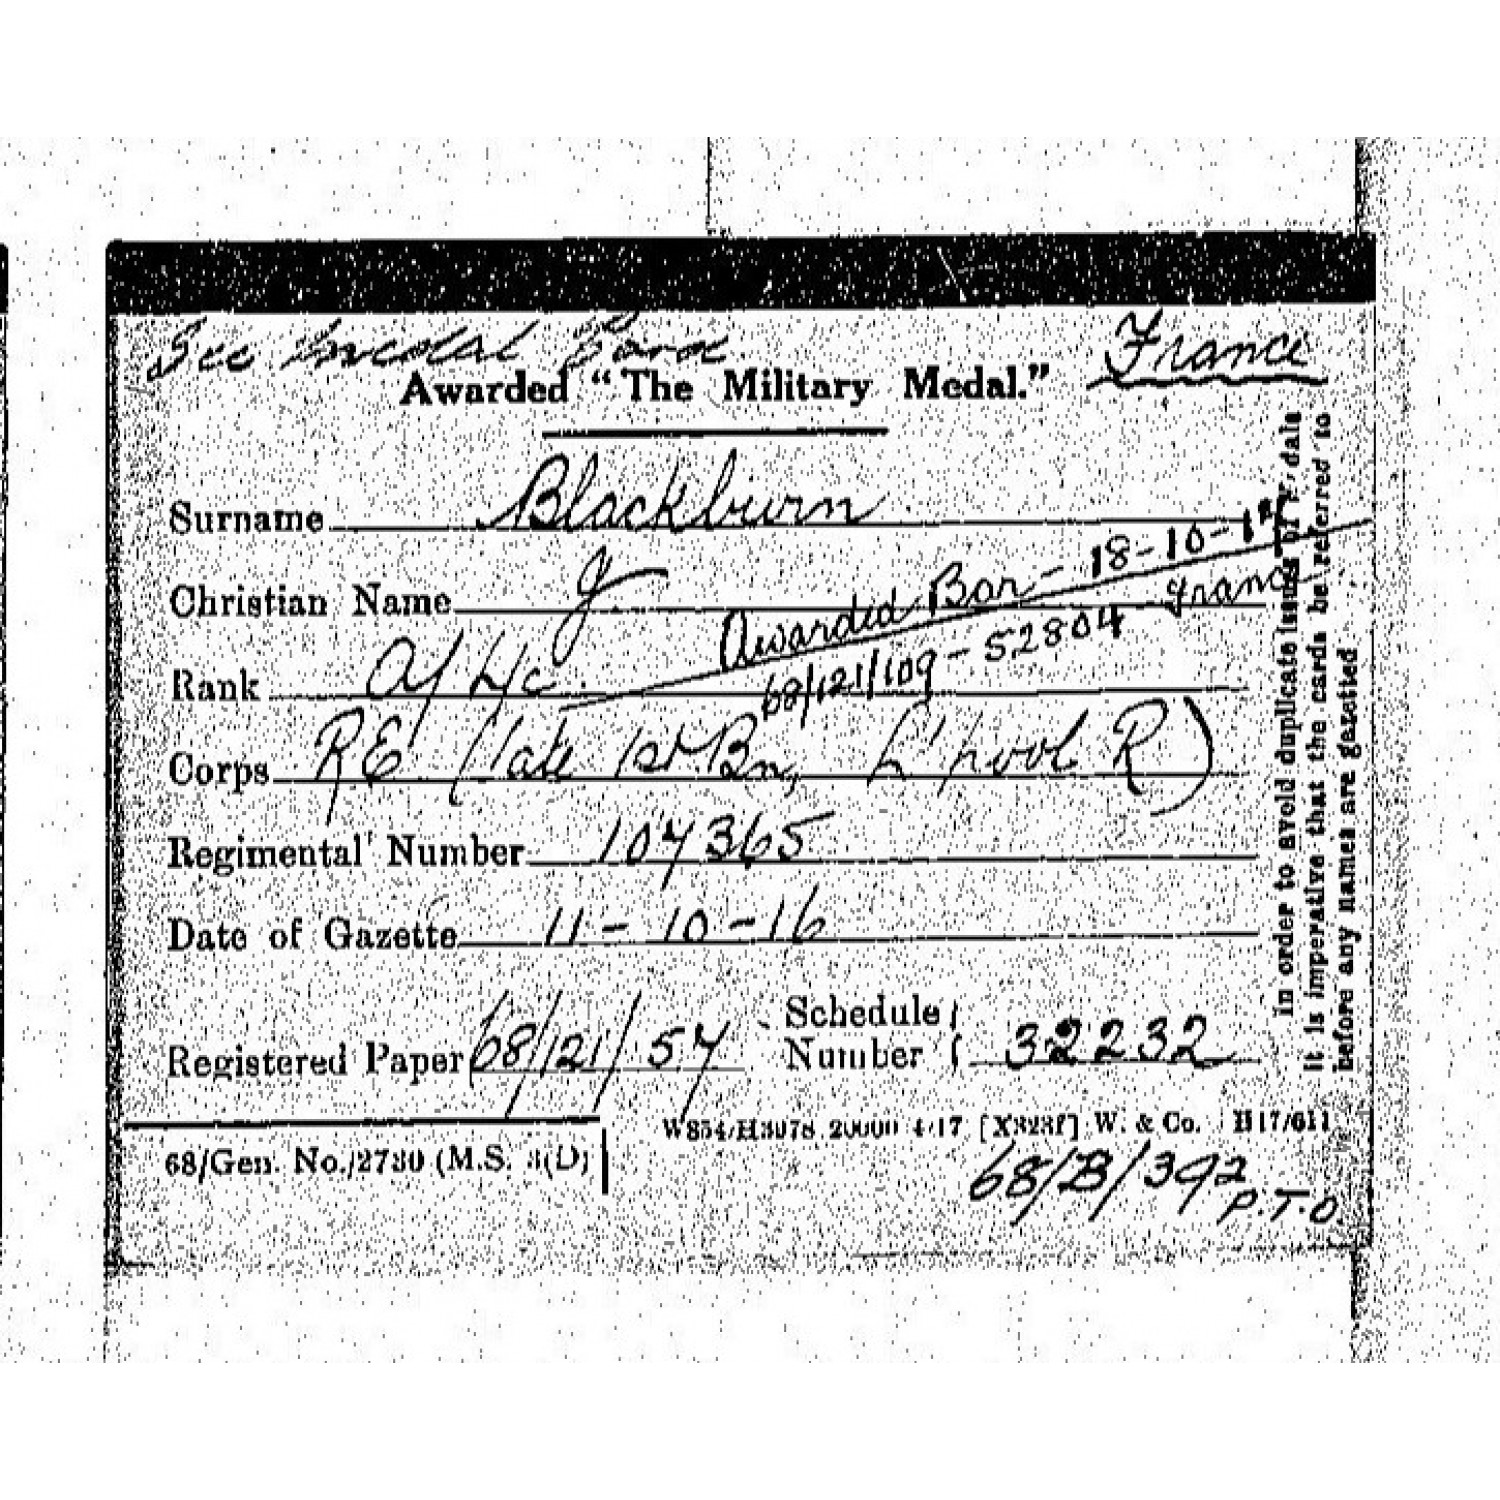 See Medal Card France
Awarded "The Military Medal."
Surname Blackburn
Christian Name J
Awarded Bar - 18-10-17
68/121/109 - 52804 France
Rank A/L/c.
Corps RE (late 1st. Bn, L'pool R)
Regimental Number 107365
Date of Gazette 11-10-16
Registered Paper 68/121/57 Schedule Number 32232
W854/H3078 20000 4/17 [X323f] W. & Co. H17/611
68/Gen. No./2730 (M.S. 3(D)
68/B/392
P.T.O
In order to avoid duplicate issues of
it is imperative that the cards be referred to
before any names are gazetted